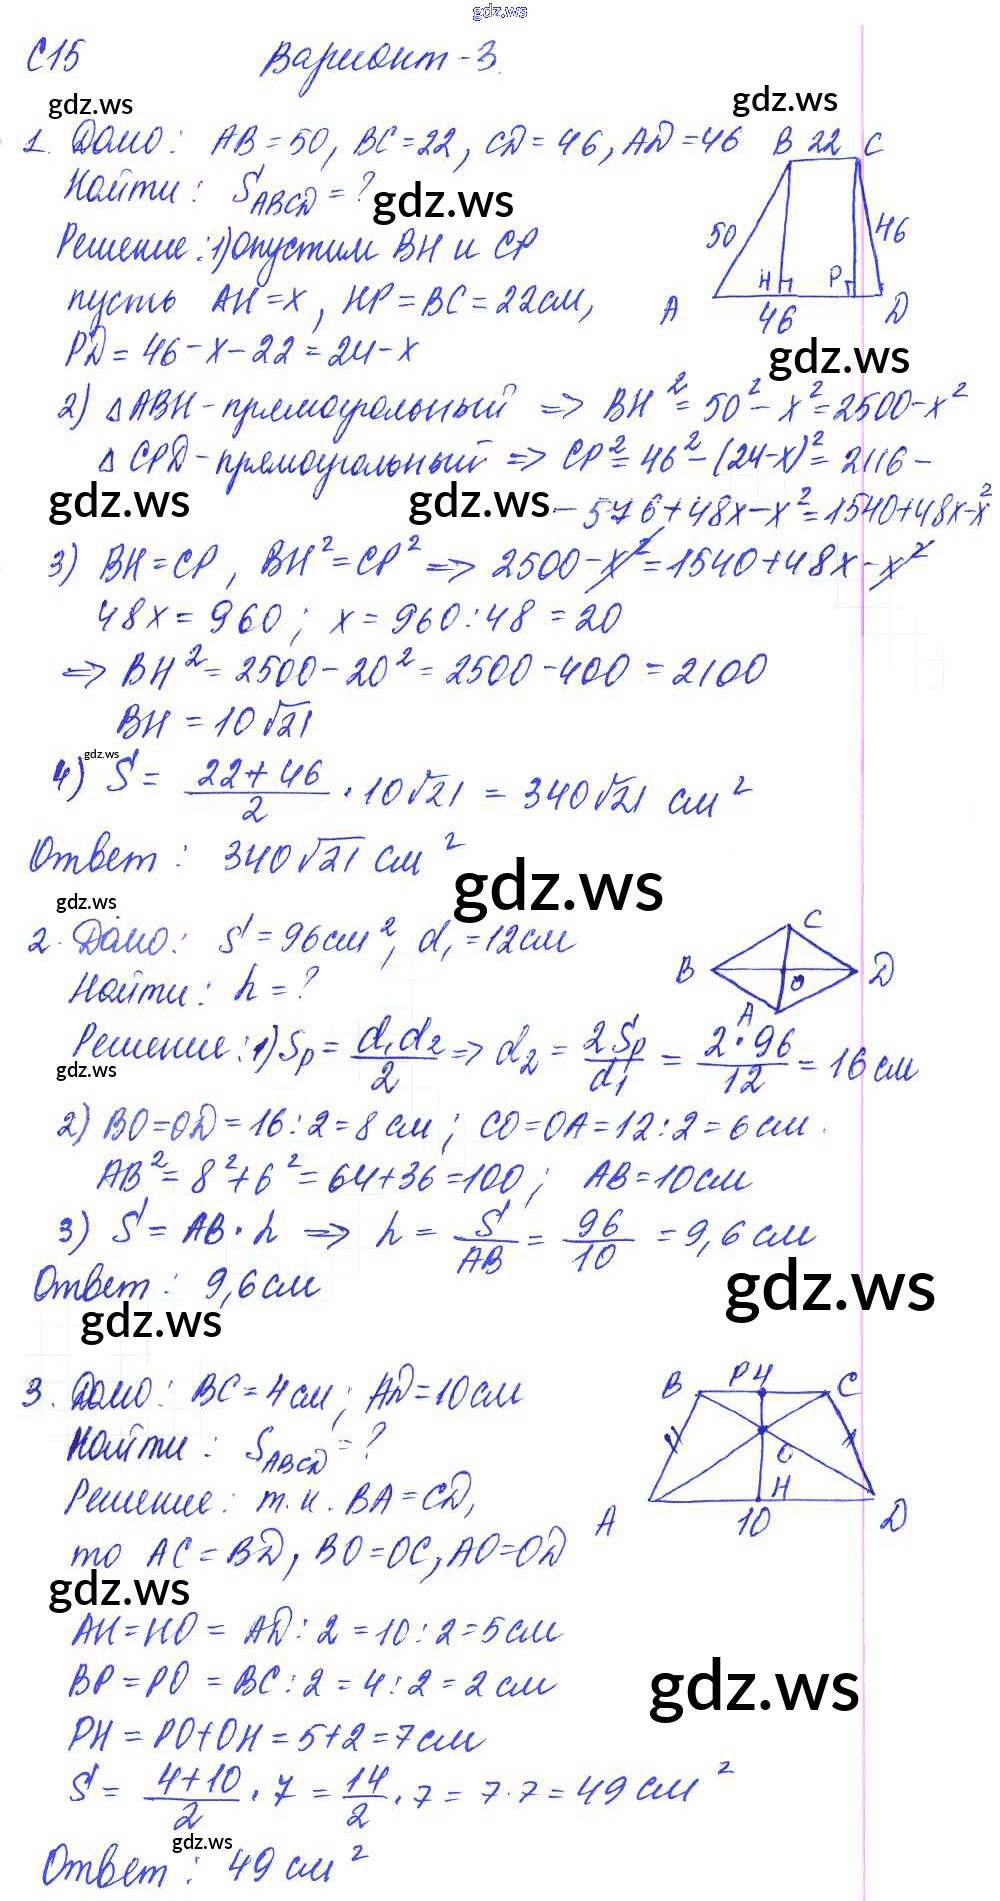 gdz.ws
С15 Вариант-3.
gdz.ws gdz.ws
1. Дано: AB=50, BC=22, CD=46, AD=46
B 22 C
Найти: S_ABCD = ?
gdz.ws
50 46
Решение: 1) Опустим BH и CP
H P
пусть AH=x, HP=BC=22см,
A 46 D
PD=46-x-22=24-x
gdz.ws
2) ΔABH-прямоугольный => BH²=50²-x²=2500-x²
ΔCPD-прямоугольный => CP²=46²-(24-x)²=2116-
gdz.ws gdz.ws
-576+48x-x²=1540+48x-x²
3) BH=CP, BH²=CP² => 2500-x²=1540+48x-x²
48x=960; x=960:48=20
=> BH²=2500-20²=2500-400=2100
BH=10√21
gdz.ws
4) S = (22+46)/2 · 10√21 = 340√21 см²
Ответ: 340√21 см²
gdz.ws
gdz.ws
2. Дано: S=96см², d₁=12см
C
B O D
A
Найти: h=?
Решение: 1) Sр = d₁d₂/2 => d₂ = 2Sр/d₁ = 2·96/12 = 16 см
gdz.ws
2) BO=OD=16:2=8см; CO=OA=12:2=6см.
AB²=8²+6²=64+36=100; AB=10см
3) S=AB·h => h = S/AB = 96/10 = 9,6 см
gdz.ws
Ответ: 9,6 см
gdz.ws
3. Дано: BC=4см; AD=10см
B P 4 C
Найти: S_ABCD=?
O
Решение: т.к. BA=CD,
H
A 10 D
то AC=BD, BO=OC, AO=OD
gdz.ws
AH=HO=AD:2=10:2=5см
BP=PO=BC:2=4:2=2см
gdz.ws
PH=PO+OH=5+2=7см
S = (4+10)/2 · 7 = 14/2 · 7 = 7·7=49см²
gdz.ws
Ответ: 49 см²